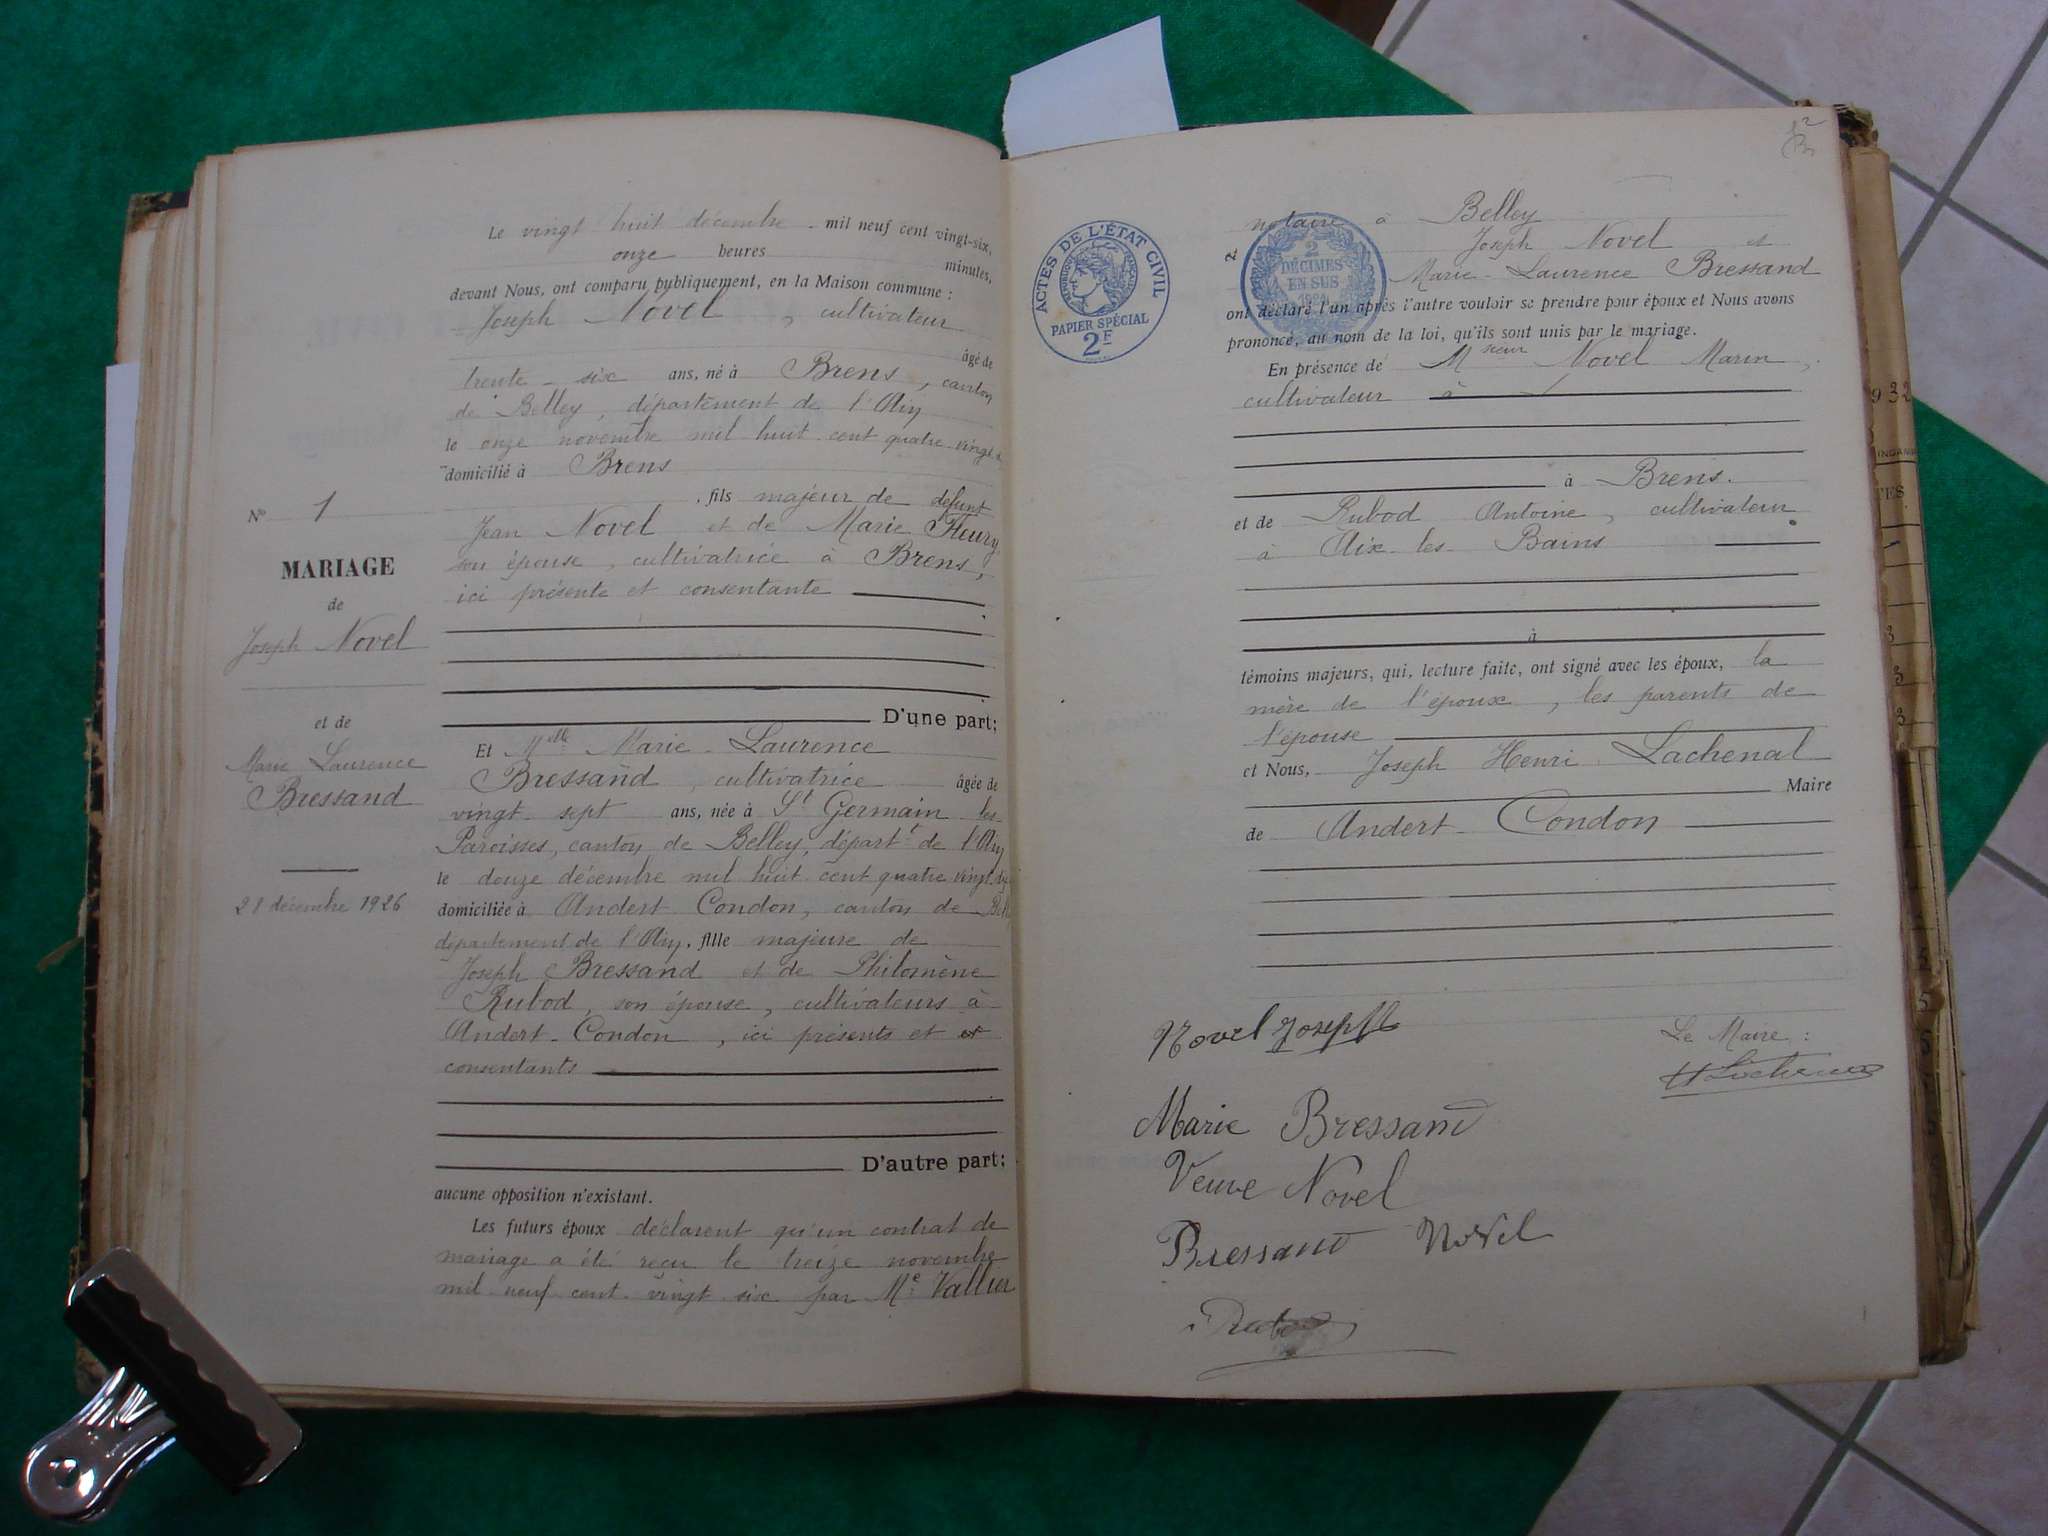 Le vingt huit décembre mil neuf cent vingt-six,
onze heures minutes,
devant Nous, ont comparu publiquement, en la Maison commune :
Joseph Novel, cultivateur
âgé de
trente-six ans, né à Brens, canton
de Belley, département de l'Ain
le onze novembre mil huit cent quatre-vingt
domicilié à Brens
, fils majeur de défunt
Jean Novel et de Marie Fleury,
son épouse, cultivatrice à Brens,
ici présente et consentante
D'une part;
Et Melle Marie-Laurence
Bressand, cultivatrice âgée de
vingt-sept ans, née à St Germain les
Paroisses, canton de Belley, départt de l'Ain
le douze décembre mil huit cent quatre vingt
domiciliée à Andert-Condon, canton de Bell
département de l'Ain, fille majeure de
Joseph Bressand et de Philomène
Rubod, son épouse, cultivateurs à
Andert-Condon, ici présents et et
consentants
D'autre part;
aucune opposition n'existant.
Les futurs époux déclarent qu'un contrat de
mariage a été reçu le treize novembre
mil neuf cent vingt six par Me Vallier
N° 1
MARIAGE
de
Joseph Novel
et de
Marie Laurence
Bressand
28 décembre 1926
2
ACTES DE L'ÉTAT CIVIL
RÉPUBLIQUE FRANÇAISE
PAPIER SPÉCIAL
2F
2
DÉCIMES
EN SUS
notaire à Belley
Joseph Novel et
Marie-Laurence Bressand
ont déclaré l'un après l'autre vouloir se prendre pour époux et Nous avons
prononcé, au nom de la loi, qu'ils sont unis par le mariage.
En présence de Msieur Novel Marin,
cultivateur à
à Brens.
et de Rubod Antoine, cultivateur
à Aix-les-Bains
à
témoins majeurs, qui, lecture faite, ont signé avec les époux, la
mère de l'époux, les parents de
l'épouse
et Nous, Joseph Henri Lachenal
Maire
de Andert-Condon
Novel Joseph
Le Maire :
H Lachenal
Marie Bressand
Veuve Novel
Bressand Novel
Rubod
932